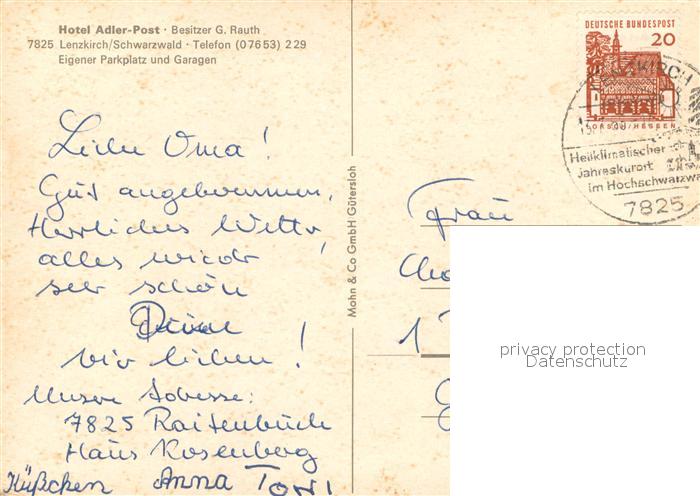 Hotel Adler-Post · Besitzer G. Rauth
7825 Lenzkirch/Schwarzwald · Telefon (07653) 229
Eigener Parkplatz und Garagen
Liebe Oma!
Gut angekommen,
Herrliches Wetter,
alles wieder
sehr schön
wir lieben!
Unsere Adresse:
7825 Raitenbuch
Haus Rosenberg
Küßchen Anna Toni
Mohn & Co GmbH Gütersloh
DEUTSCHE BUNDESPOST
20
LORSCH/HESSEN
LENZKIRCH
Heilklimatischer
Jahreskurort
im Hochschwarzwa
7825
Frau
1
privacy protection
Datenschutz